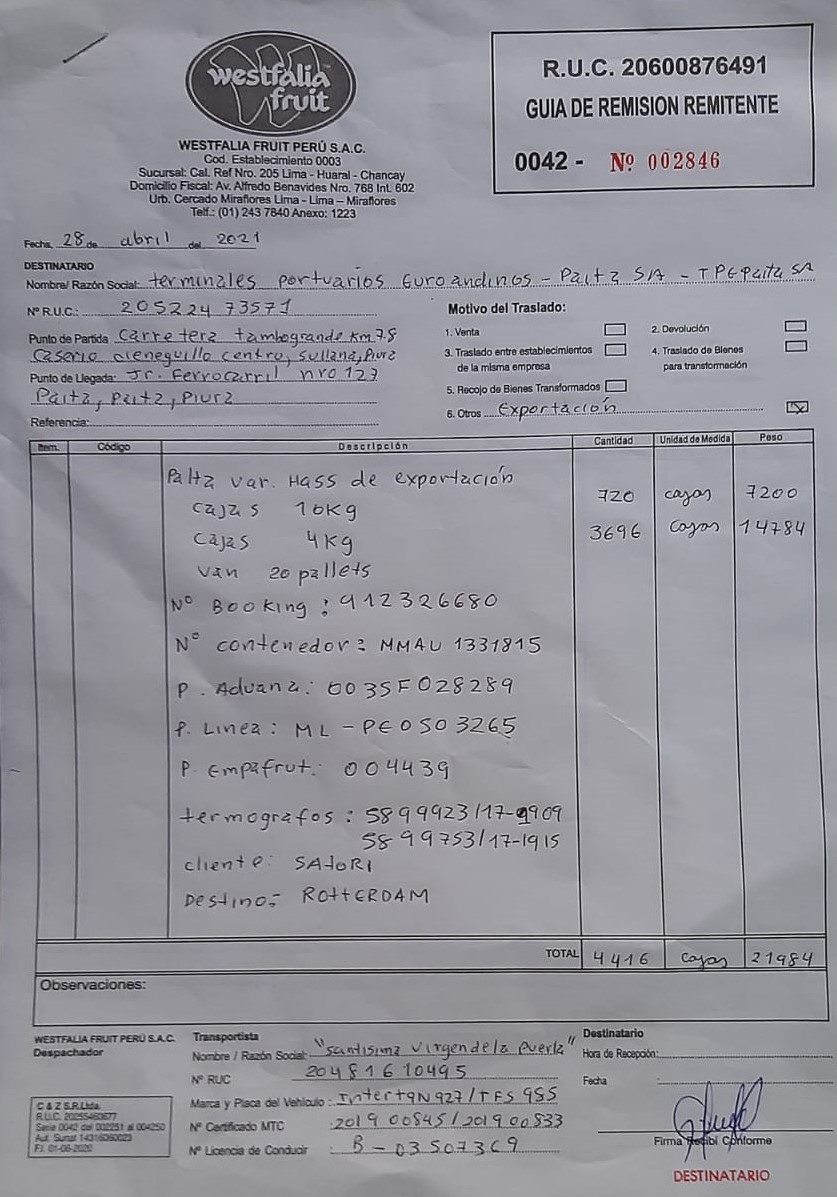 westfalia
fruit
WESTFALIA FRUIT PERÚ S.A.C.
Cod. Establecimiento 0003
Sucursal: Cal. Ref Nro. 205 Lima - Huaral - Chancay
Domicilio Fiscal: Av. Alfredo Benavides Nro. 768 Int. 602
Urb. Cercado Miraflores Lima - Lima – Miraflores
Telf.: (01) 243 7840 Anexo: 1223
R.U.C. 20600876491
GUIA DE REMISION REMITENTE
0042 - Nº 002846
Fecha, 28 de abril del 2021
DESTINATARIO
Nombre/ Razón Social: terminales portuarios Euroandinos - Paita S/A - TPEPaita SA
Nº R.U.C.: 20522473571
Punto de Partida Carretera tambogrande Km 7.8
Caserio cieneguillo centro, Sullana, Piura
Punto de Llegada: Jr. Ferrocarril nro 127
Paita, Paita, Piura
Referencia:
Motivo del Traslado:
1. Venta
2. Devolución
3. Traslado entre establecimientos
de la misma empresa
4. Traslado de Bienes
para transformación
5. Recojo de Bienes Transformados
6. Otros Exportación X
Item. Código Descripción Cantidad Unidad de Medida Peso
Palta var. Hass de exportación
cajas 10kg 720 cajas 7200
cajas 4kg 3696 cajas 14784
van 20 pallets
Nº Booking: 912326680
N° contenedor: MMAU 1331815
P. Aduana: 0035F028289
P. Linea: ML - PE0503265
P. Empafrut: 004439
termografos: 5899923/17-1909
5899753/17-1915
cliente: SAtoRI
Destino: ROttERDAM
TOTAL 4416 cajas 21984
Observaciones:
WESTFALIA FRUIT PERÚ S.A.C.
Despachador
C & Z S.R.Ltda.
R.U.C. 20255460677
Serie 0042 del 002251 al 004250
Aut. Sunat 14316060023
F.I. 01-06-2020
Transportista
Nombre / Razón Social: "santisima virgen de la Puerta"
Nº RUC 20481610495
Marca y Placa del Vehículo: Intert9N927/TFS 985
Nº Certificado MTC : 201900845/201900833
Nº Licencia de Conducir B - 03507369
Destinatario
Hora de Recepción:
Fecha
Firma Recibí Conforme
DESTINATARIO